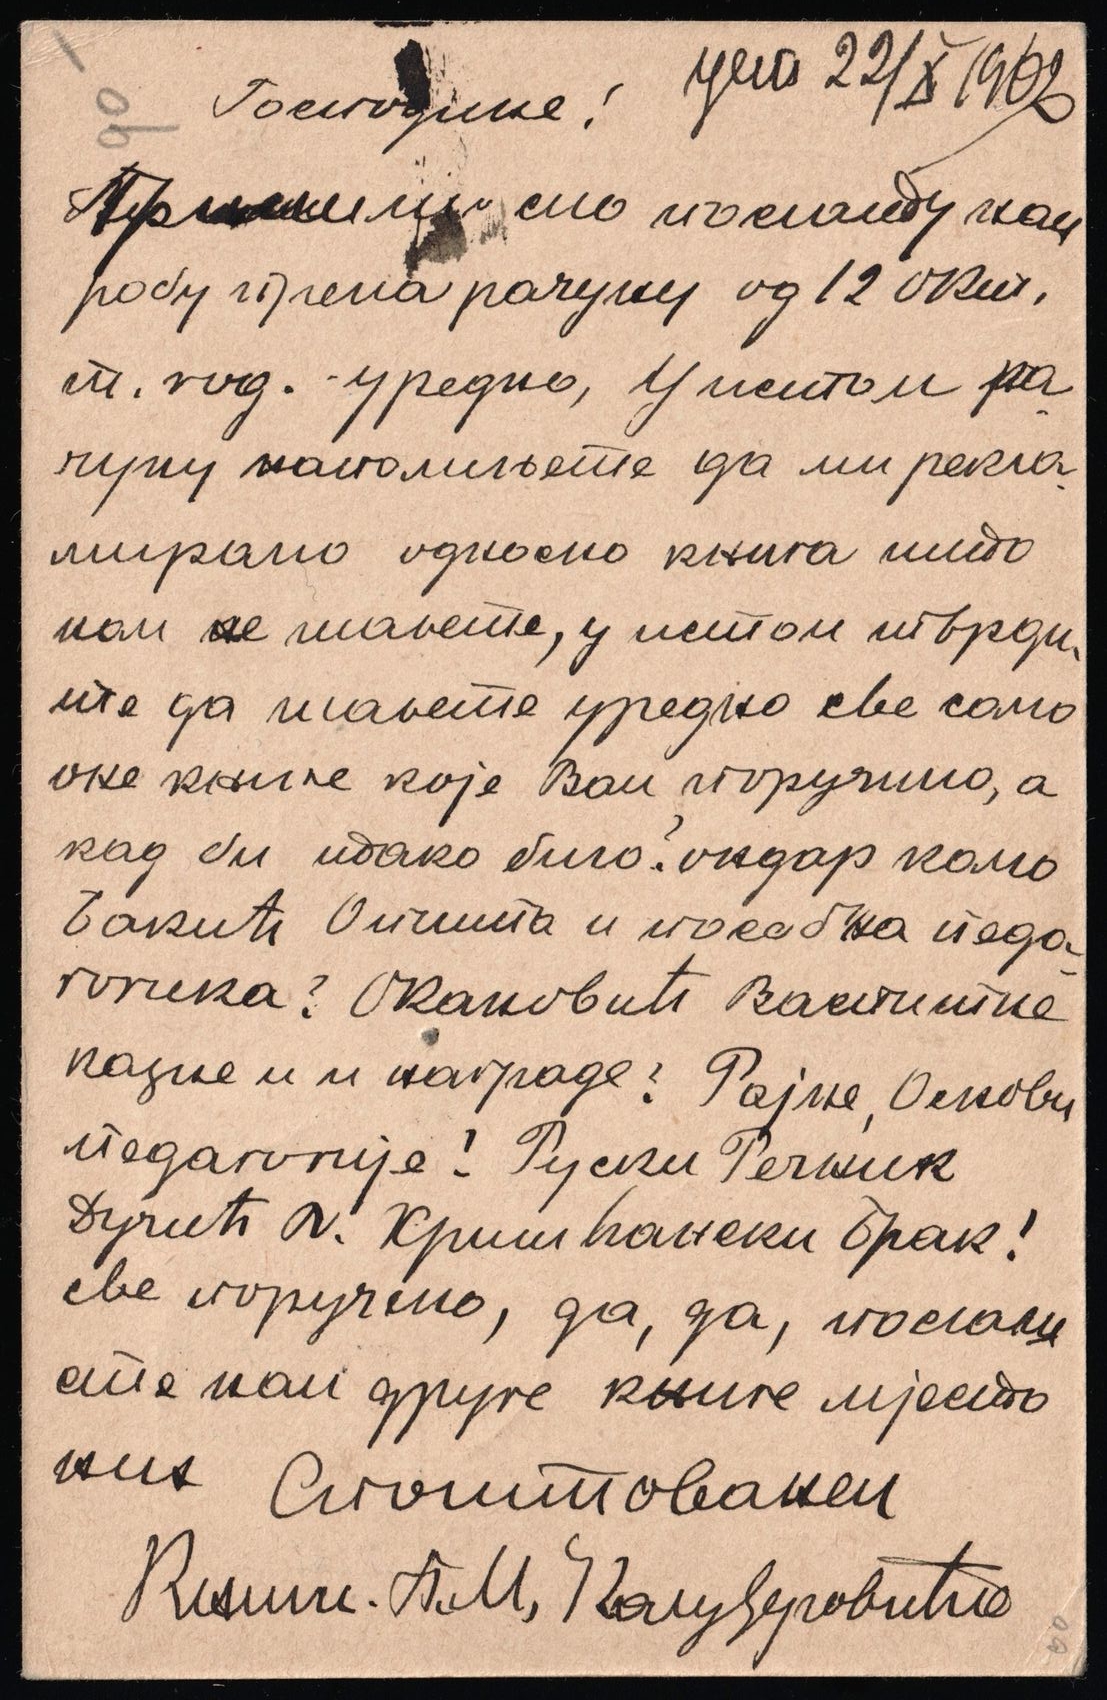 22/X 1902
Господине!
Примили смо послату нам
робу према рачуну од 12 Окт.
т. год. - уредно, У истом ра-
чуну напомињете да ми рекла-
мирамо односно књига што
нам не шаљете, у истом тврди-
те да шаљете уредно све само
оне књиге које Вам поручимо, а
кад би тако било? ондар камо
Бакић Општа и посебна педа-
гогика? Окановић Васпитне
казне и и награде? Рајне, Основи
педагогије! Руски Речник
Дучић Н. Хришћански брак!
све поручено, да, да, послали
сте нам друге књиге мјесто
них Споштовањем
Књиж. П. М.